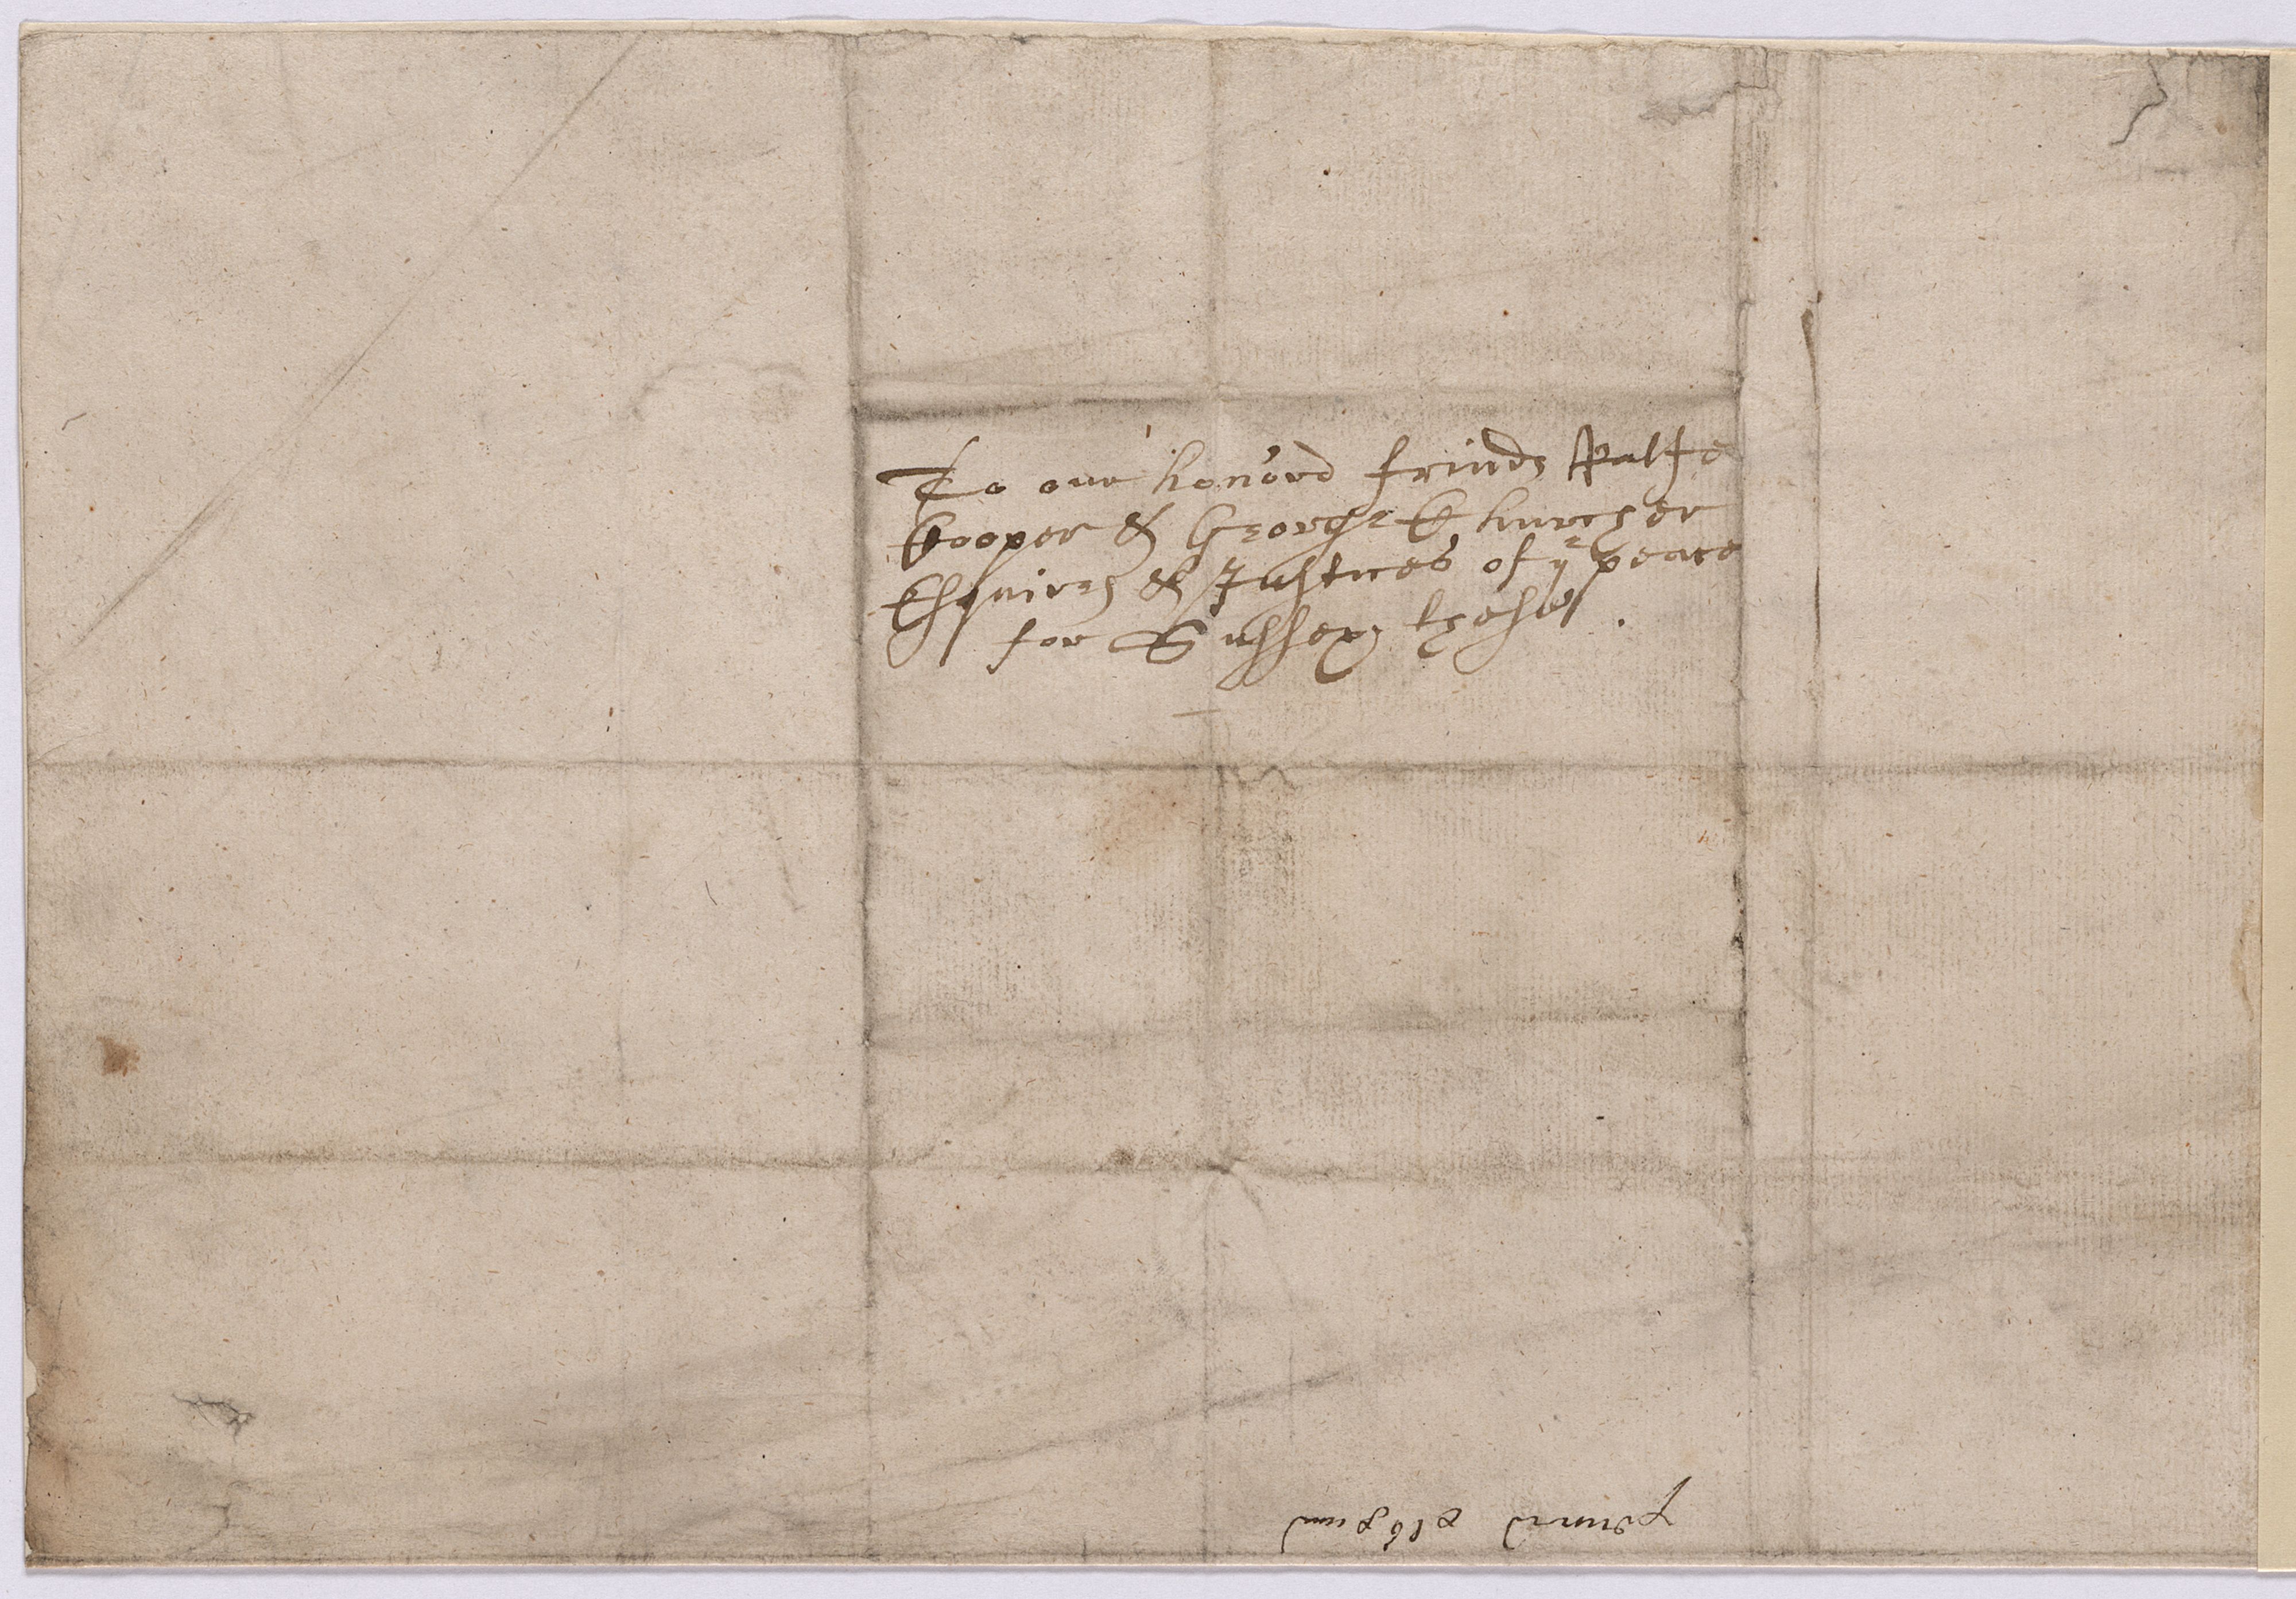 To our honord frinds Ralfe
Cooper & George Churcher
Esquires & Justices of ye peace
for Sussex these .